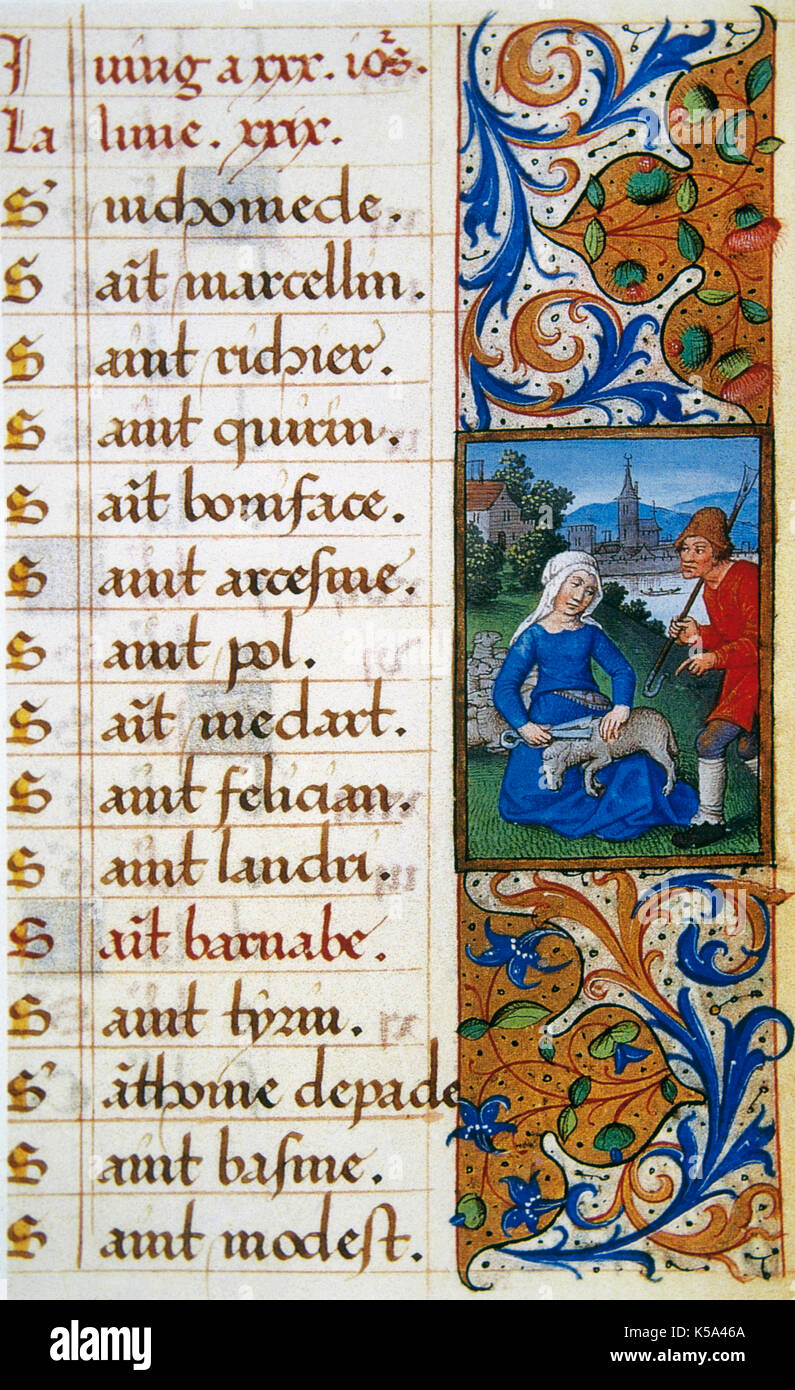 Juing a xxx. io's.
La lune. xxix.
S' nichomede.
S aīt marcellin.
S aint richier.
S aint quirin.
S aīt boniface.
S aint arcesme.
S aint pol.
S aīt medart.
S aint felician.
S aint landri.
S aīt barnabe.
S aint tyrin.
S' āthoine depade
S aint basme.
S aint modest.
alamy stock photo
K5A46A
www.alamy.com